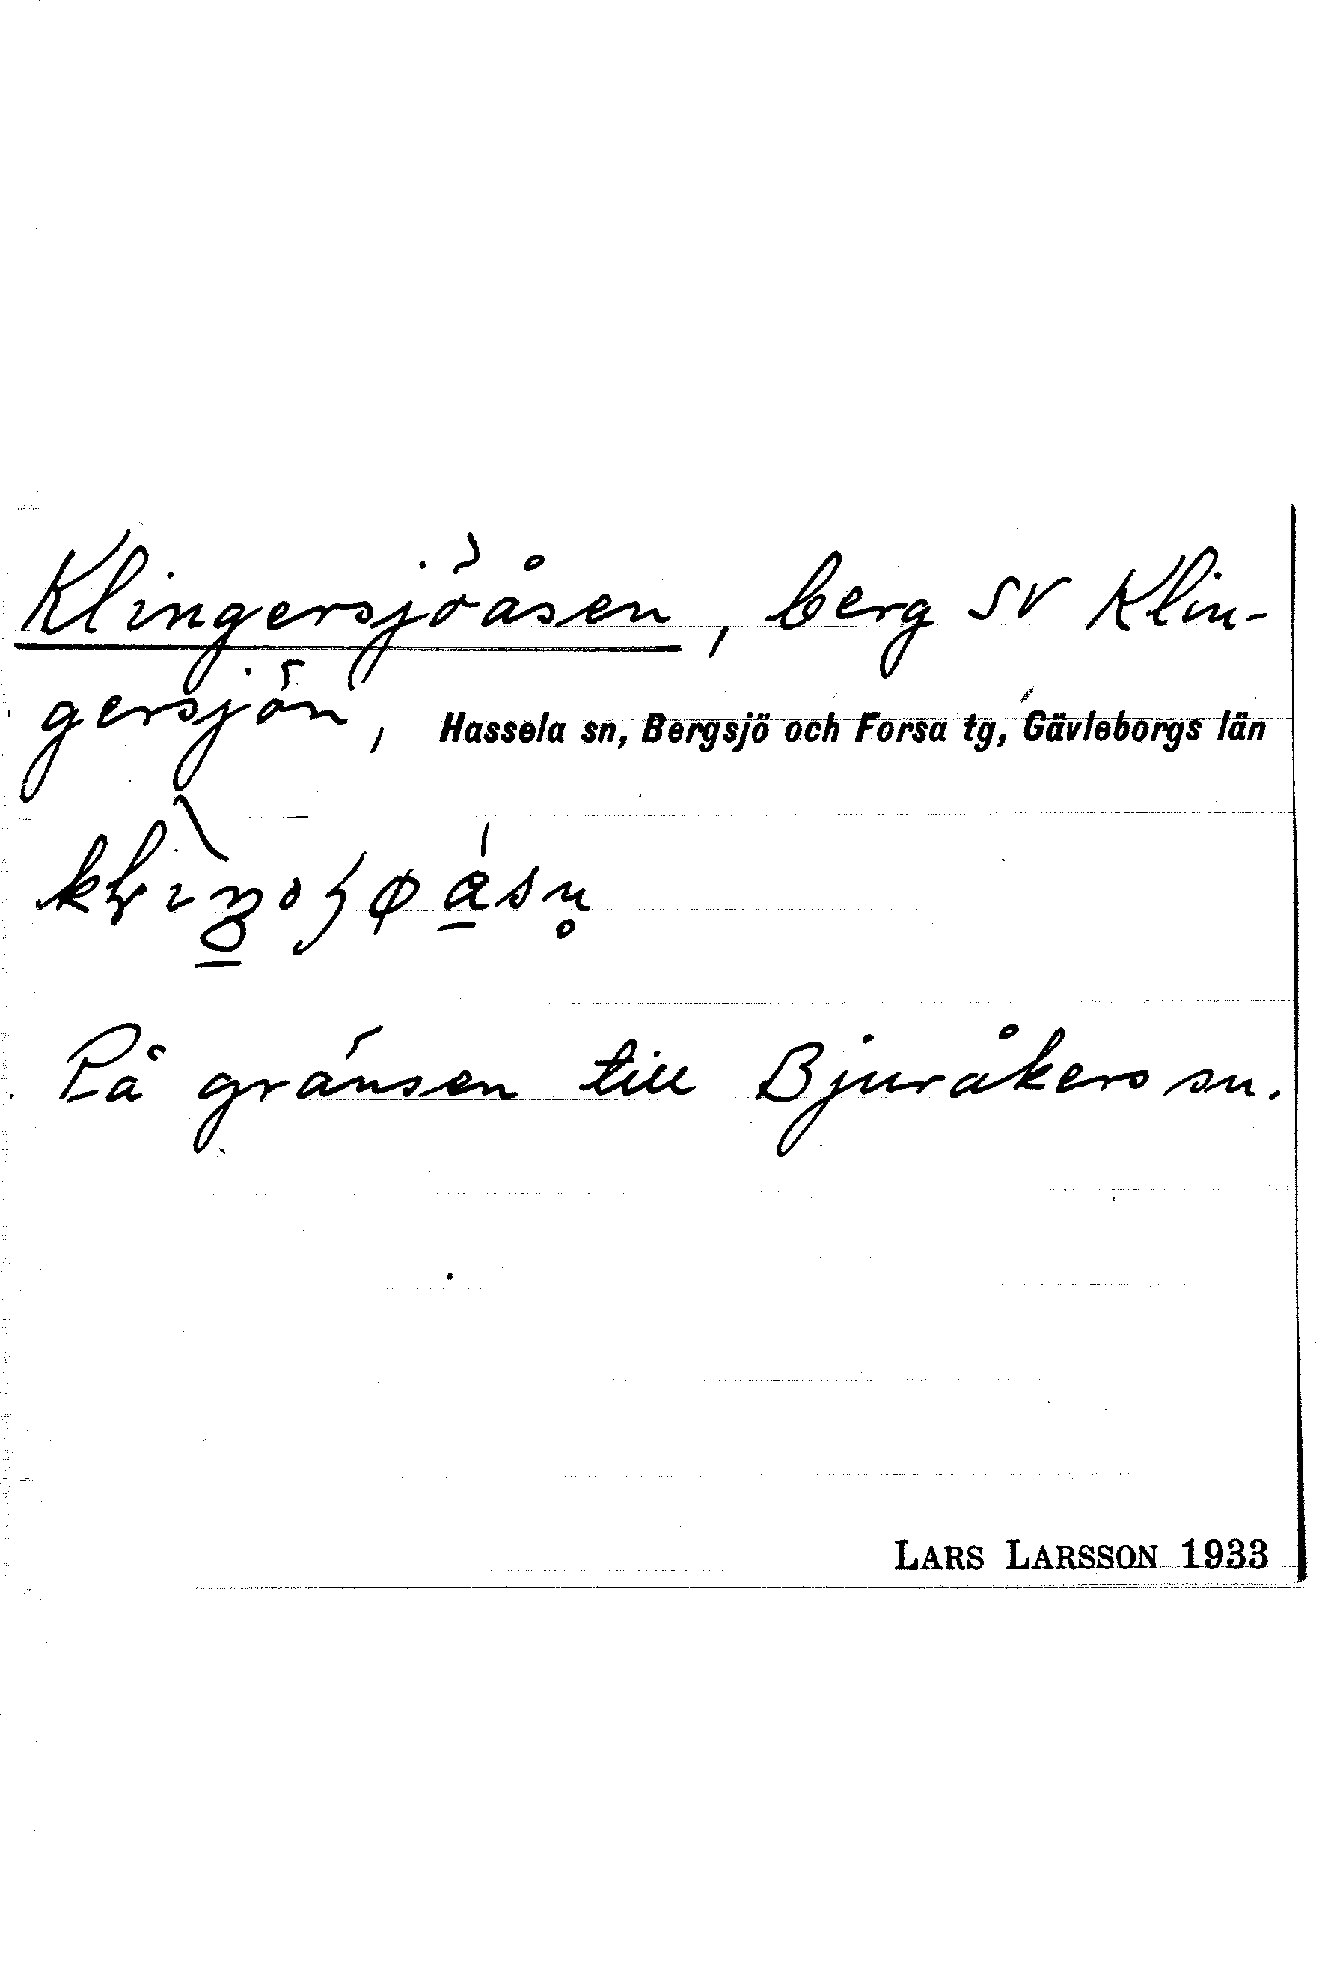 Klingersjöåsen, berg SV Klin-
gersjön, Hassela sn, Bergsjö och Forsa tg, Gävleborgs län
På gränsen till Bjuråkers sn.
LARS LARSSON 1933